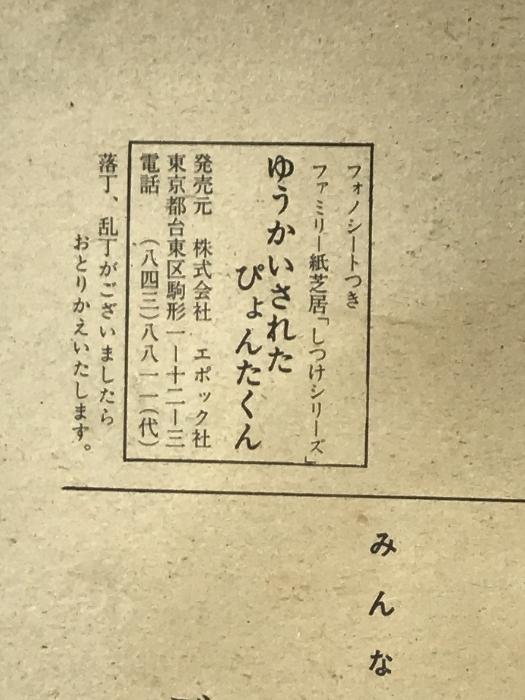 フォノシートつき
ファミリー紙芝居「しつけシリーズ」
ゆうかいされた
ぴょんたくん
発売元　株式会社　エポック社
東京都台東区駒形一ー十二ー三
電話　（八四三）八八一一（代）
落丁、乱丁がございましたら
おとりかえいたします。
みんな